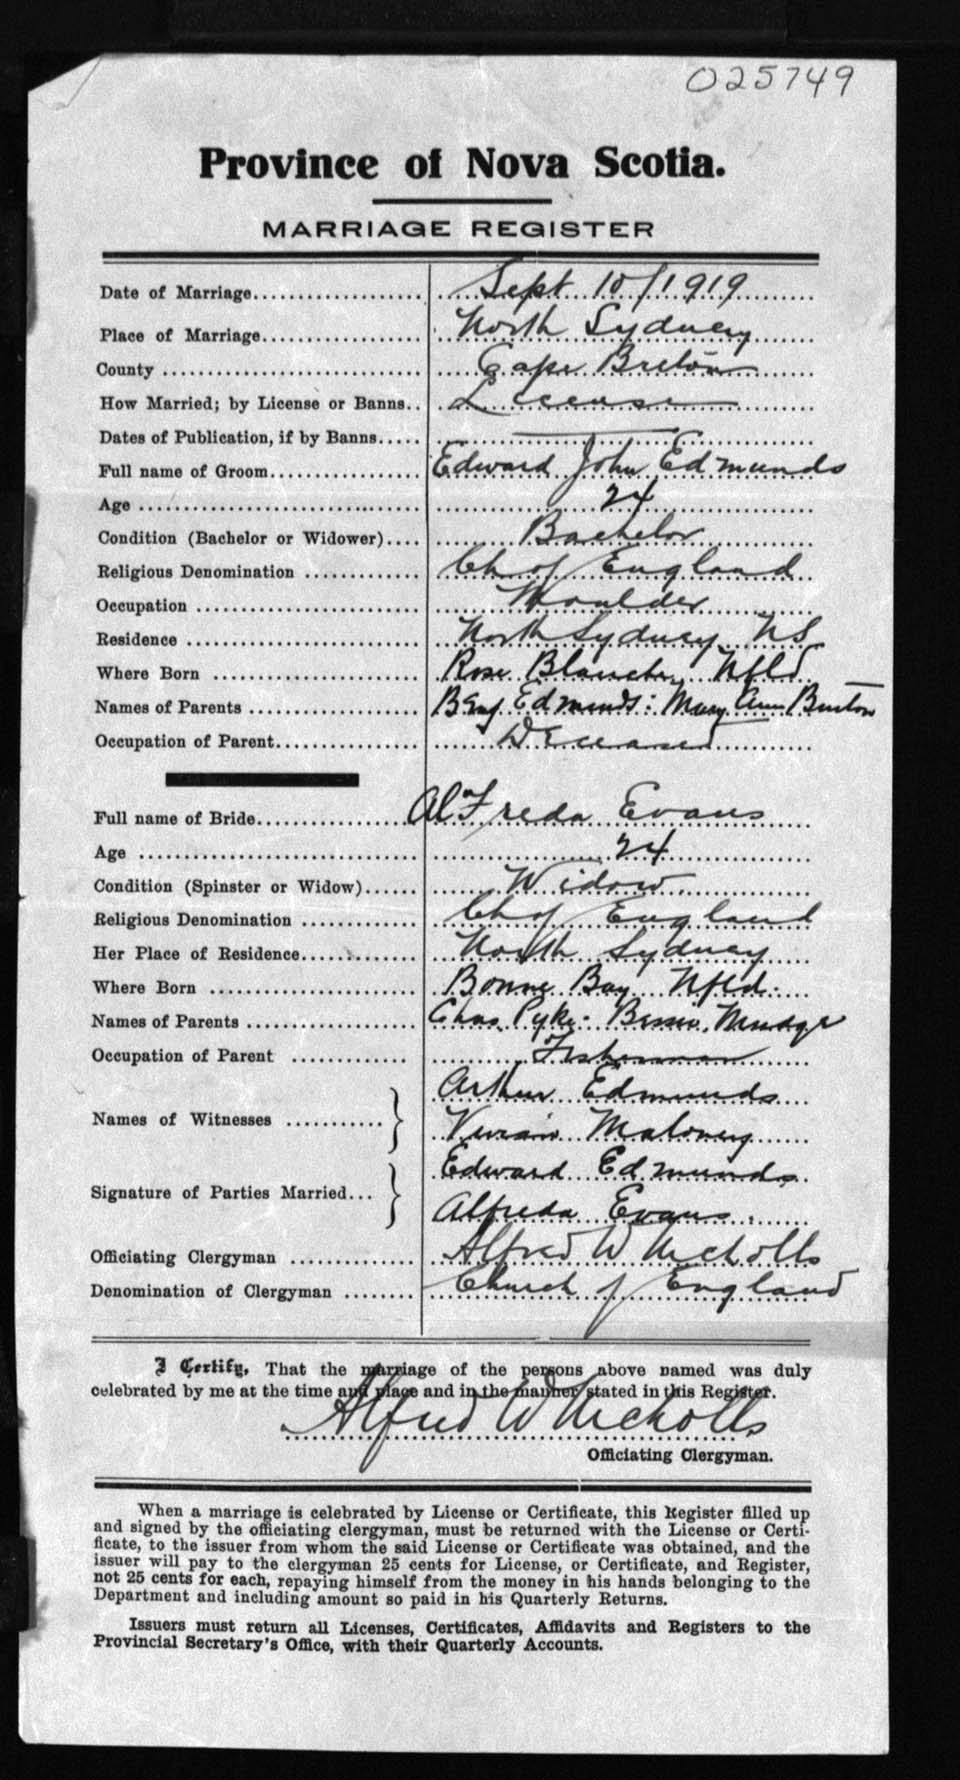 025749
Province of Nova Scotia.
MARRIAGE REGISTER
Date of Marriage.................... Sept 10/1919
Place of Marriage................... North Sydney
County .............................. Cape Breton
How Married; by License or Banns.. License
Dates of Publication, if by Banns..... —
Full name of Groom.................. Edward John Edmunds
Age ................................. 24
Condition (Bachelor or Widower).... Bachelor
Religious Denomination ............. Ch of England
Occupation .......................... Moulder
Residence ........................... North Sydney NS
Where Born ........................ Rose Blanche, Nfld
Names of Parents .................... Benj Edmunds: Mary Ann Buxton
Occupation of Parent................. Deceased
Full name of Bride.................. AlFreda Evans
Age ................................. 24
Condition (Spinster or Widow)...... Widow
Religious Denomination ............. Ch of England
Her Place of Residence............. North Sydney
Where Born ........................ Bonne Bay Nfld.
Names of Parents .................... Chas. Pyke. Bessie Mudge
Occupation of Parent .............. Fisherman
Names of Witnesses ........... } Arthur Edmunds
Vivian Maloney
Signature of Parties Married... } Edward Edmunds
Alfreda Evans.
Officiating Clergyman .............. Alfred W Nicholls
Denomination of Clergyman ........ Church of England
I Certify, That the marriage of the persons above named was duly
celebrated by me at the time and place and in the manner stated in this Register.
Alfred W Nicholls
Officiating Clergyman.
When a marriage is celebrated by License or Certificate, this Register filled up
and signed by the officiating clergyman, must be returned with the License or Certi-
ficate, to the issuer from whom the said License or Certificate was obtained, and the
issuer will pay to the clergyman 25 cents for License, or Certificate, and Register,
not 25 cents for each, repaying himself from the money in his hands belonging to the
Department and including amount so paid in his Quarterly Returns.
Issuers must return all Licenses, Certificates, Affidavits and Registers to the
Provincial Secretary's Office, with their Quarterly Accounts.